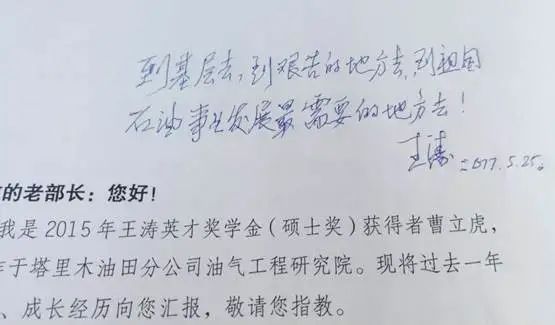 到基层去,到艰苦的地方去,到祖国
石油事业发展最需要的地方去!
王涛 二〇一七.5.25.
的老部长:您好!
我是 2015 年王涛英才奖学金(硕士奖)获得者曹立虎,
作于塔里木油田分公司油气工程研究院。现将过去一年
、成长经历向您汇报,敬请您指教。